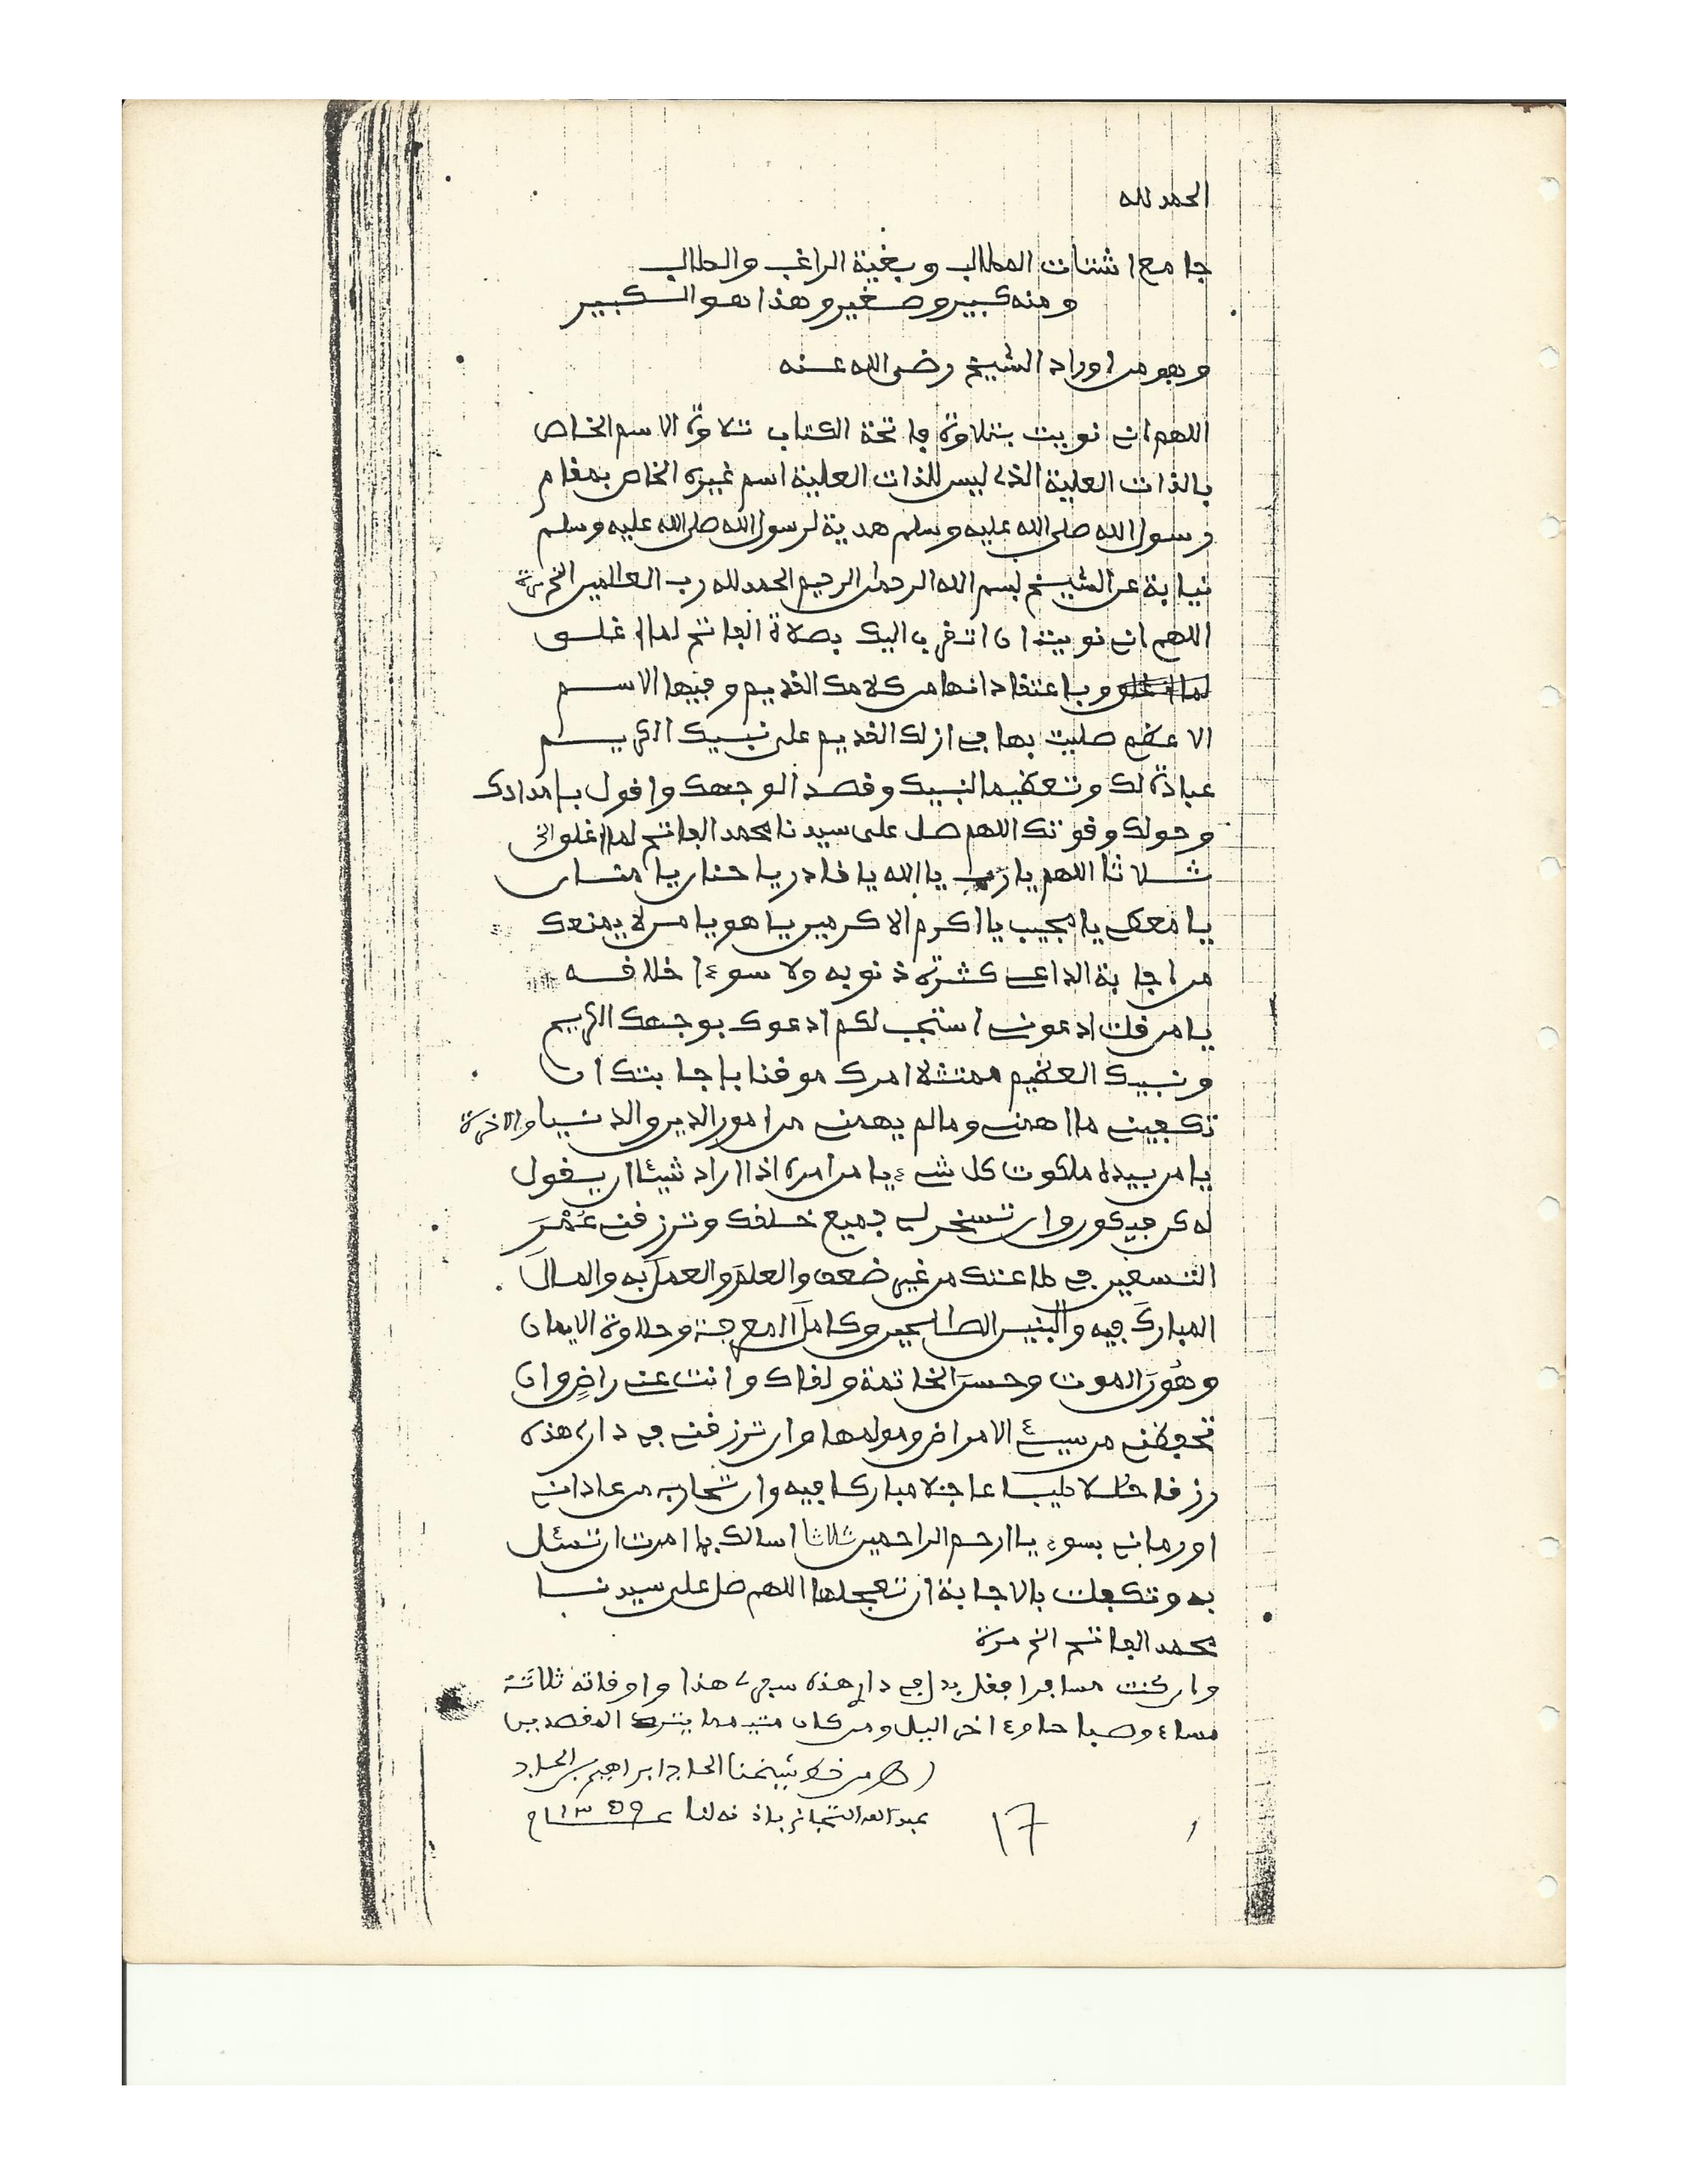 الحمد لله
جامع اشتات المطالب وبغية الراغب والطالب
ومنه كبير وصغير وهذا هو الكبير
وهو من اوراد الشيخ رضى الله عنه
اللهم انى نويت بتلاوة فاتحة الكتاب تلاوة الاسم الخاص
بالذات العلية الذى ليس للذات العلية اسم غيره الخاص بمقام
رسول الله صلى الله عليه وسلم هدية لرسول الله صلى الله عليه وسلم
نيابة عن الشيخ بسم الله الرحمن الرحيم الحمد لله رب العالمين الخ مرة
اللهم انى نويت ان اتقرب اليك بصلاة الفاتح لما اغلق
لما اغلق وباعتقاد انها من كلامك القديم وفيها الاسم
الاعظم صليت بها فى ازلك القديم على نبيك الكريم
عبادة لك وتعظيما لنبيك وقصدا لوجهك واقول بامدادك
وحولك وقوتك اللهم صل على سيدنا محمد الفاتح لما اغلق الخ
ثلاثا اللهم يا رب يا الله يا قادر يا حنان يا منان
يا معطى يا مجيب يا اكرم الاكرمين يا هو يا من لا يمنعك
من اجابة الداعى كثرة ذنوبه ولا سوء اخلاقه
يا من قلت ادعونى استجب لكم ادعوك بوجهك الكريم
ونبيك العظيم ممتثلا امرك موقنا باجابتك ان
تكفينى ما اهمنى وما لم يهمنى من امور الدين والدنيا والاخرة
يا من بيده ملكوت كل شىء يا من امره اذا اراد شيئا ان يقول
له كن فيكون وان تسخر لى جميع خلقك وترزقنى عُمْرَ
التسعين فى طاعتك من غير ضعف والعلمَ والعملَ به والمالَ
المباركَ فيه والبنين الصالحين وكاملَ المعرفة وحلاوة الايمان
وهُونَ الموت وحسنَ الخاتمة ولقاك وانت عنى راضٍ وان
تحفظنى من سيئ الامراض ومولمها وان ترزقنى فى دارى هذه
رزقا حلالا طيبا عاجلا مباركا فيه وان تحارب من عادانى
او رمانى بسوء يا ارحم الراحمين ثلاثا اسالك بما امرت ان تسئل
به وتكفلت بالاجابة ان تعجلها اللهم صل على سيدنا
محمد الفاتح الخ مرة
وان كنت مسافرا فقل بدل فى دارى هذه سفرى هذا واوقاته ثلاثة
مساء وصباحا وءاخر الليل ومن كان متيمما يترك المقصدين
اهـ من خط شيخنا الحاج ابراهيم بن الحاج
عبد الله التجانى باذنه لنا عـ ١٣٥٩ ـام
١٧